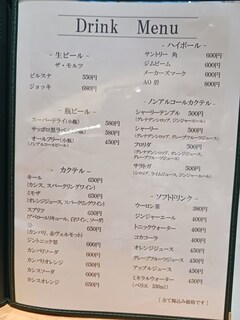 Drink Menu
- 生ビール -
ザ・モルツ
ピルスナ 550円
ジョッキ 680円
- 瓶ビール -
スーパードライ(小瓶) 580円
サッポロ黒ラベル(小瓶) 580円
オールフリー(小瓶) 450円
(ノンアルコールビール)
- カクテル -
キール 650円
(カシス、スパークリングワイン)
ミモザ 650円
(オレンジジュース、スパークリングワイン)
スプリッツ 650円
650円
(カンパリ、赤ヴェルモット)
ジントニック 600円
カンパリソーダ 600円
カンパリオレンジ 650円
カシスソーダ 600円
カシスオレンジ 650円
- ハイボール -
サントリー 角 600円
ジムビーム 600円
メーカーズマーク 600円
AO 碧 800円
- ノンアルコールカクテル -
シャーリーテンプル 500円
(グレナデンシロップ、ジンジャーエール)
シャーリー 500円
(グレナデンシロップ、
グレープフルーツジュース)
フロリダ 500円
(オレンジジュース、
サラトガ 500円
- ソフトドリンク -
ウーロン茶 380円
ジンジャーエール 400円
トニックウォーター 400円
コカコーラ 400円
オレンジジュース 450円
グレープフルーツジュース 450円
アップルジュース 450円
ミネラルウォーター 450円
(全て税込み価格です)